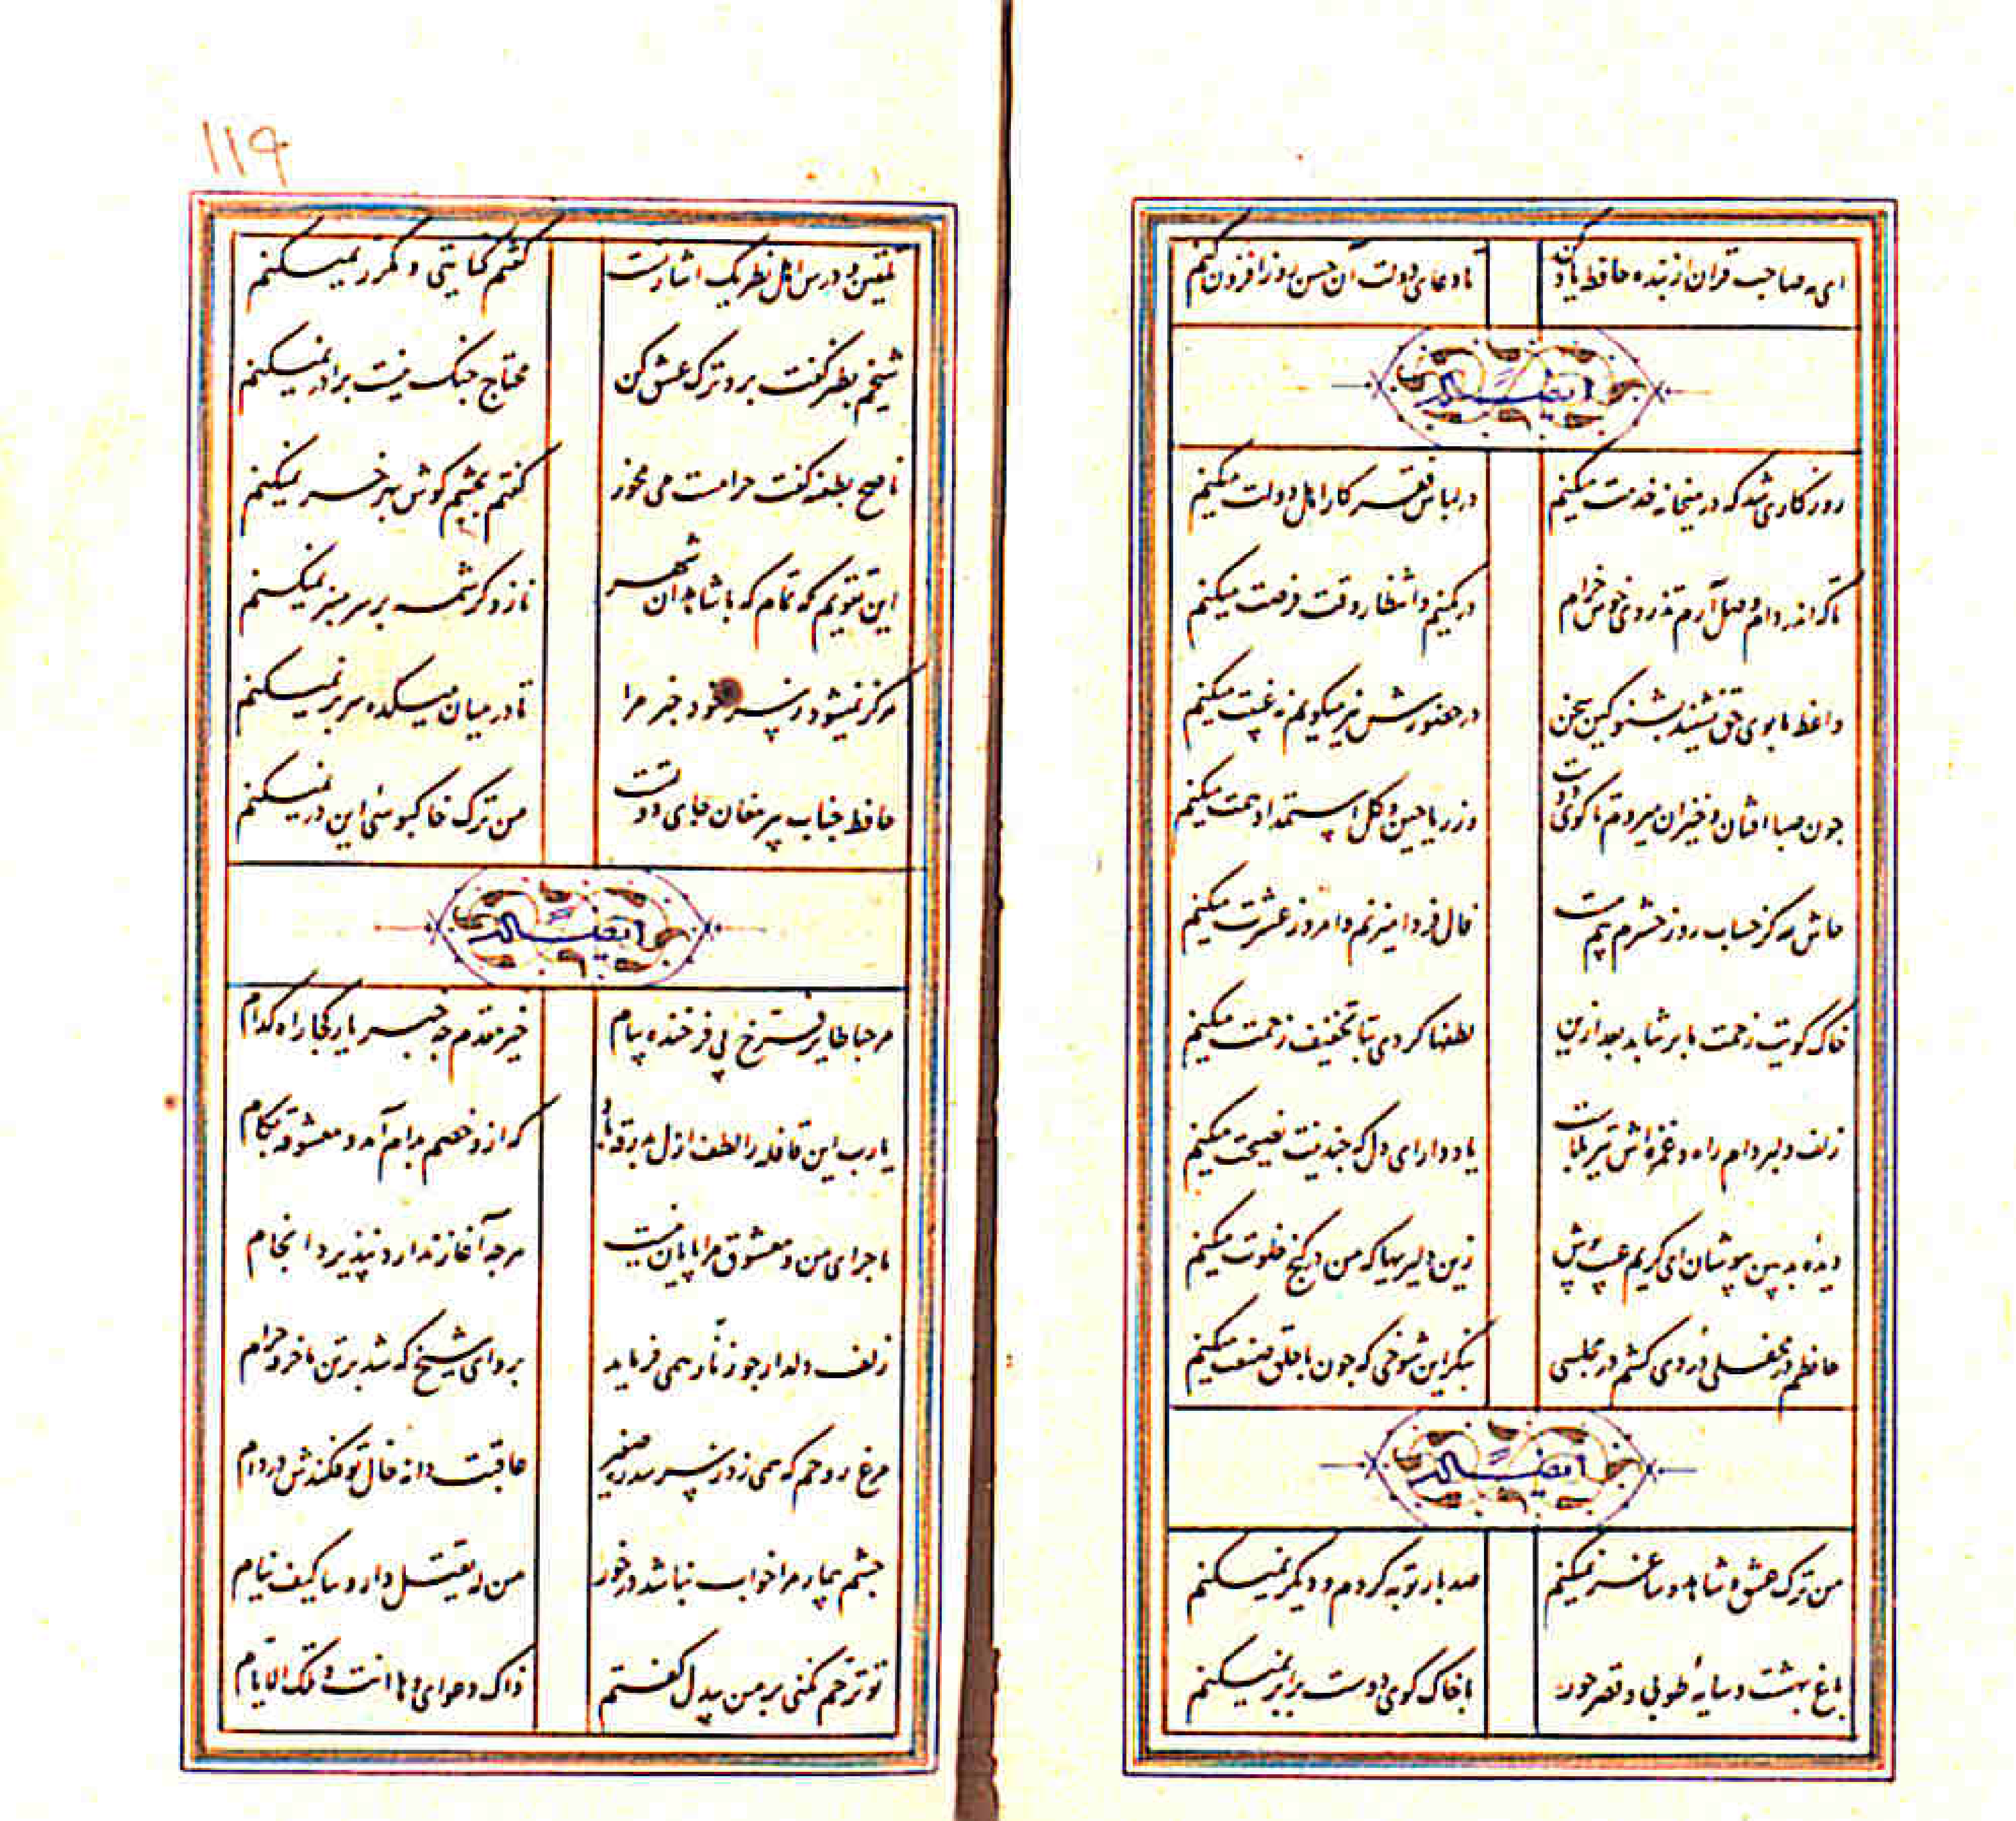 ای مه صاحب قران از بنده حافظ یاد کن
تا دعای دولت آن حسن روز افزون کنم
ایضاله
روزکاری شد که در میخانه خدمت میکنم
در لباس فقر کار اهل دولت میکنم
تا کی اندر دام وصل آرم تذروی خوش خرام
در کمینم و انتظار وقت فرصت میکنم
واعظ ما بوی حق نشنید بشنو کین سخن
در حضورش نیز میکویم نه غیبت میکنم
جون صبا افتان و خیزان میروم تا کوی دوست
وز ریاحین و کل استمداد همت میکنم
حاش لله کز حساب روز حشرم بیم نیست
فال فردا میزنم و امروز عشرت میکنم
خاک کویت زحمت ما بر نتابد بعد ازین
لطفها کردی بتا تخفیف زحمت میکنم
زلف دلبر دام راه و غمزه اش تیر بلاست
یاد دار ای دل که جندینت نصیحت میکنم
دیده بدبین بپوشان ای کریم عیب پوش
زین دلیریها که من در کنج خلوت میکنم
حافظم در محفلی دردی کشم در مجلسی
بنکر این شوخی که جون با خلق صنعت میکنم
ایضاله
من ترک عشق و شاهد و ساغر نمیکنم
صد بار توبه کردم و دیکر نمیکنم
باغ بهشت و سایه طوبی و قصر حور
با خاک کوی دوست برابر نمیکنم
۱۱۹
تلقین و درس اهل نظر یک اشارت
گفتم کنایتی و مکرر نمیکنم
شیخم بطنز کفت برو ترک عشق کن
محتاج جنک نیست برادر نمیکنم
ناصح بطعنه کفت حرامست می مخور
کفتم بچشم کوش بهر خر نمیکنم
این تقویم که تمام که با شاهدان شهر
ناز و کرشمه بر سر منبر نمیکنم
هرکز نمیشود ز سر خود خبر مرا
تا در میان میکده سر بر نمیکنم
حافظ جناب پیر مغان جای دولتست
من ترک خاکبوسی این در نمیکنم
ایضاله
مرحبا طایر فرخ پی فرخنده پیام
خیر مقدم جه خبر یار کجا راه کدام
یارب این قافله را لطف ازل بدرقه باد
که ازو خصم بدام آمد و معشوقه بکام
ماجرای من و معشوق مرا پایان نیست
هرجه آغاز ندارد نپذیرد انجام
زلف دلدار جو زنار همی فرماید
برو ای شیخ که شد بر تن ما خرقه حرام
مرغ روحم که همی زد ز سر سدره صفیر
عاقبت دانه خال تو فکندش در دام
جشم بیمار مرا خواب نباشد در خور
من له یقتل داء و سا کیف ینام
تو ترحم نکنی بر من بیدل گفتم
ذاک دعوای وها انت و تلک الایام